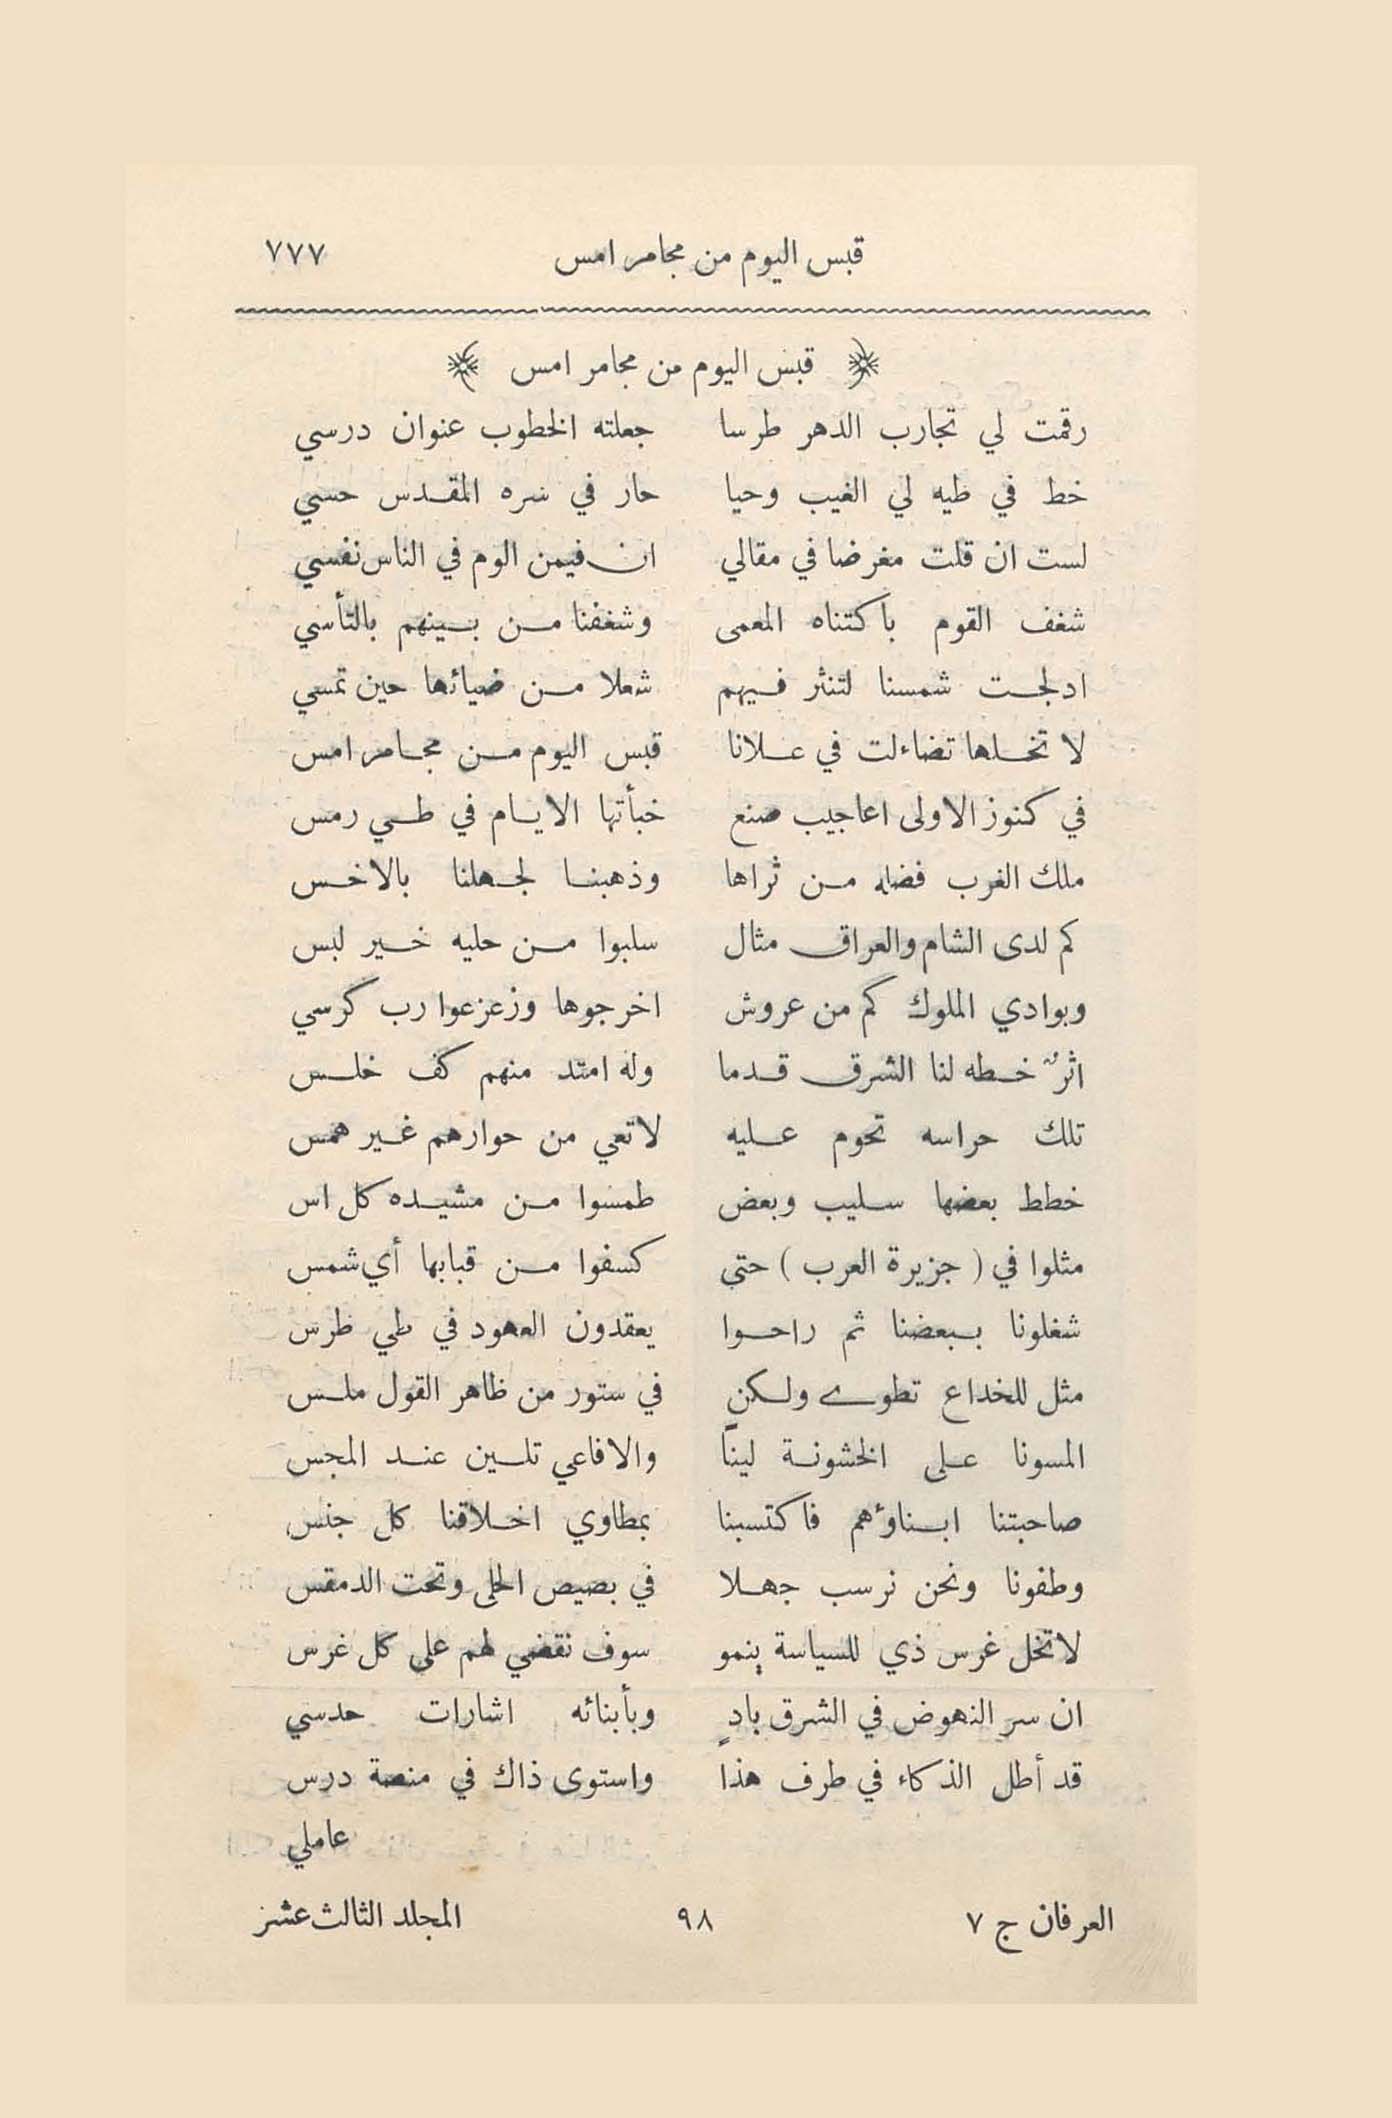 قبس اليوم من مجامر امس ٧٧٧
قبس اليوم من مجامر امس
رقمت لي تجارب الدهر طرسا جعلته الخطوب عنوان درسي
خط في طيه لي الغيب وحيا حار في سره المقدس حسي
لست ان قلت مغرضا في مقالي ان فيمن الوم في الناس نفسي
شغف القوم باكتناه المعمى وشغفنا من بينهم بالتأسي
ادلجت شمسنا لتنثر فيهم شعلا من ضيائها حين تمسي
لا تخلها تضاءلت في علانا قبس اليوم من مجامر امس
في كنوز الاولى اعاجيب صنع خبأتها الايام في طي رمس
ملك الغرب فضله من ثراها وذهبنا لجهلنا بالاخس
كم لدى الشام والعراق مثال سلبوا من حليه خير لبس
وبوادي الملوك كم من عروش اخرجوها وزعزعوا رب كرسي
اثرٌ خطه لنا الشرق قدما وله امتد منهم كف خلس
تلك حراسه تحوم عليه لا تعي من حوارهم غير همس
خطط بعضها سليب وبعض طمسوا من مشيده كل اس
مثلوا في ( جزيرة العرب ) حتى كسفوا من قبابها أي شمس
شغلونا ببعضنا ثم راحوا يعقدون العهود في طي طرس
مثل للخداع تطوى ولكن في ستور من ظاهر القول ملس
المسونا على الخشونة ليناً والافاعي تلين عند المجس
صاحبتنا ابناؤهم فاكتسبنا بمطاوي اخلاقنا كل جنس
وطفونا ونحن نرسب جهلا في بصيص الحلى وتحت الدمقس
لا تخل غرس ذي للسياسة ينمو سوف نقضي لهم على كل غرس
ان سر النهوض في الشرق بادٍ وبأبنائه اشارات حدسي
قد أطل الذكاء في طرف هذا واستوى ذاك في منصة درس
عاملي
العرفان ج ٧ ٩٨ المجلد الثالث عشر